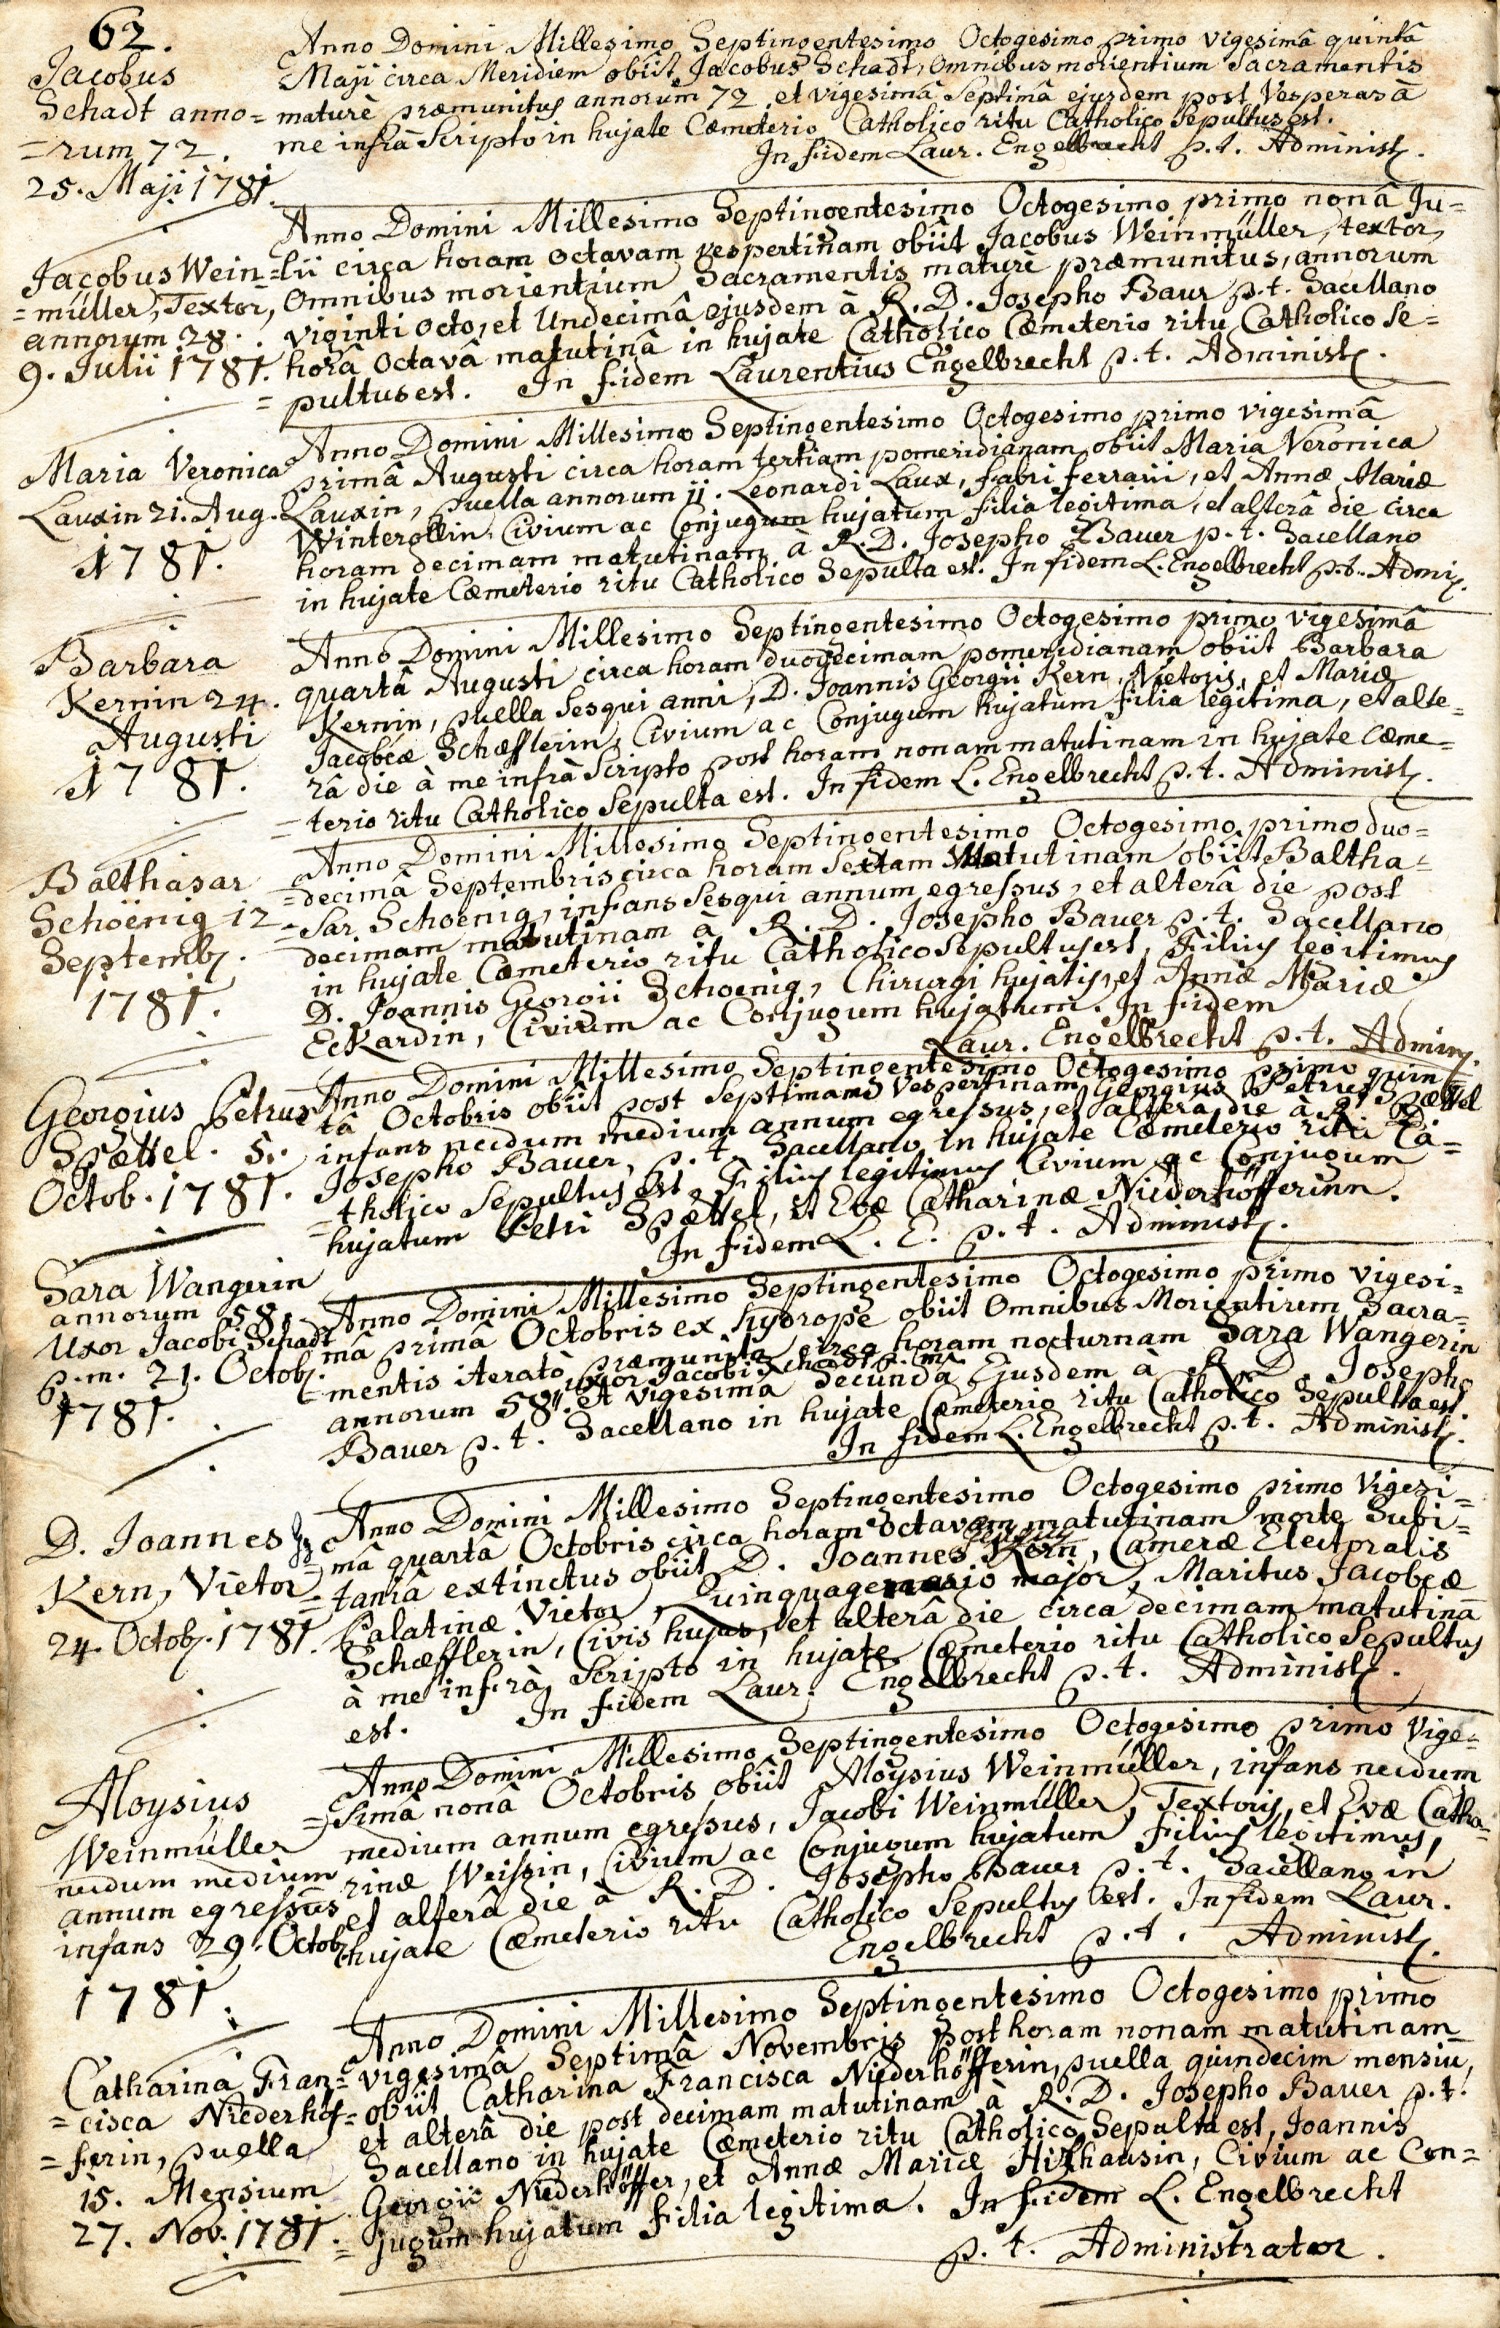 62.
Jacobus
Schadt anno=
=rum 72.
25. Maji 1781.
Anno Domini Millesimo Septingentesimo Octogesimo primo vigesimâ quintâ
Maji circa Meridiem obiit Jacobus Schadt, Omnibus morientium Sacramentis
maturè præmunitus annorum 72 et vigesimâ Septimâ ejusdem post Vesperas à
me infrà Scripto in hujate Cæmeterio Catholico ritu Catholico Sepultus est.
In fidem Laur. Engelbrecht p.t. Administ.
Jacobus Wein=
=müller, Textor,
annorum 28.
9. Julii 1781.
Anno Domini Millesimo Septingentesimo Octogesimo primo nonâ Ju=
=lii circa horam octavam vespertinam obiit Jacobus Weinmüller, textor,
Omnibus morientium Sacramentis maturè præmunitus, annorum
viginti octo, et Undecimâ ejusdem à R. D. Josepho Baur p.t. Sacellano
horâ Octavâ matutinâ in hujate Catholico Cæmeterio ritu Catholico Se=
=pultus est. In fidem Laurentius Engelbrecht p.t. Administ.
Maria Veronica
Lauxin 21. Aug.
1781.
Anno Domini Millesimo Septingentesimo Octogesimo primo vigesimâ
primâ Augusti circa horam tertiam pomeridianam obiit Maria Veronica
Lauxin, puella annorum 11. Leonardi Laux, fabri ferrarii, et Annæ Mariæ
Winterollin, Civium ac Conjugum hujatum filia legitima, et alterâ die circa
horam decimam matutinam à R. D. Josepho Bauer p.t. Sacellano
in hujate Cæmeterio ritu Catholico Sepulta est. In fidem L. Engelbrecht p.t. Admi.
Barbara
Kernin 24.
Augusti
1781.
Anno Domini Millesimo Septingentesimo Octogesimo primo vigesimâ
quartâ Augusti circa horam duodecimam pomeridianam obiit Barbara
Kernin, puella Sesqui anni, D. Joannis Georgii Kern, Vietoris, et Mariæ
Jacobeæ Schæfflerin, Civium ac Conjugum hujatum filia legitima, et alte=
râ die à me infrà Scripto post horam nonam matutinam in hujate Cæme=
=terio ritu Catholico Sepulta est. In fidem L. Engelbrecht p.t. Administ.
Balthasar
Schoënig 12
Septemb.
1781.
Anno Domini Millesimo Septingentesimo Octogesimo primo duo=
=decimâ Septembris circa horam Sextam Matutinam obiit Baltha=
=sar Schoenig, infans Sesqui annum egressus, et alterâ die post
decimam matutinam à R. D. Josepho Bauer p.t. Sacellano
in hujate Cæmeterio ritu Catholico Sepultus est, Filius legitimus
D. Joannis Georgii Schoenig, Chirurgi hujatis, et Annæ Mariæ
Eckardin, Civium ac Conjugum hujatum. In fidem
Laur. Engelbrecht p.t. Admin.
Georgius Petrus
Spættel. 5.
Octob. 1781.
Anno Domini Millesimo Septingentesimo Octogesimo primo quin=
tâ Octobris obiit post Septimam Vespertinam Georgius Petrus Spættel
infans necdum medium annum egressus, et alterâ die à R. D.
Josepho Bauer, p.t. Sacellano in hujate Cæmeterio ritu Ca=
=tholico Sepultus est, Filius legitimus Civium ac Conjugum
hujatum Petri Spættel, et Evæ Catharinæ Niederhöfferinn.
In fidem L. E. p.t. Administ.
Sara Wangerin
annorum 58,
Uxor Jacobi Schadt
p.m. 21. Octob.
1781.
Anno Domini Millesimo Septingentesimo Octogesimo primo vigesi=
mâ primâ Octobris ex hydrope obiit Omnibus Morientium Sacra=
=mentis iteratò præmunita circa horam nocturnam Sara Wangerin
uxor Jacobi Schadt p.m.
annorum 58. et vigesimâ Secundâ Ejusdem à R. D. Josepho
Bauer p.t. Sacellano in hujate Cæmeterio ritu Catholico Sepulta est.
In fidem L. Engelbrecht p.t. Administ.
D. Joannes
Kern, Vietor
24. Octob. 1781.
Anno Domini Millesimo Septingentesimo Octogesimo primo Vigesi=
=mâ quartâ Octobris circa horam octavam matutinam morte Subi=
=taniâ extinctus obiit D. Joannes Georgius Kern, Cameræ Electoralis
Palatinæ Vietor, Quinquagenario major, Maritus Jacobeæ
Schæfflerin, Civis hujus, et alterâ die circa decimam matutinâ
à me infrà Scripto in hujate Cæmeterio ritu Catholico Sepultus
est. In fidem Laur. Engelbrecht p.t. Administ.
Aloysius
Weinmüller
necdum medium
annum egressus
infans 29. Octob.
1781.
Anno Domini Millesimo Septingentesimo Octogesimo primo Vige=
=simâ nonâ Octobris obiit Aloysius Weinmüller, infans necdum
medium annum egressus, Jacobi Weinmüller, Textoris, et Evæ Catha=
rinæ Weissin, Civium ac Conjugum hujatum Filius legitimus,
et alterâ die à R. D. Josepho Bauer p.t. Sacellano in
hujate Cæmeterio ritu Catholico Sepultus est. In fidem Laur.
Engelbrecht p.t. Administ.
Catharina Fran=
=cisca Niederhöf=
=ferin, puella
15. Mensium
27. Nov. 1781.
Anno Domini Millesimo Septingentesimo Octogesimo primo
vigesimâ Septimâ Novembris post horam nonam matutinam
obiit Catharina Francisca Niederhöfferin, puella quindecim mensiu,
et alterâ die post decimam matutinam à R. D. Josepho Bauer p.t.
Sacellano in hujate Cæmeterio ritu Catholico Sepulta est, Joannis
Georgii Niederhöffer, et Annæ Mariæ Hilzhausin, Civium ac Con=
=jugum hujatum filia legitima. In fidem L. Engelbrecht
p.t. Administrator.